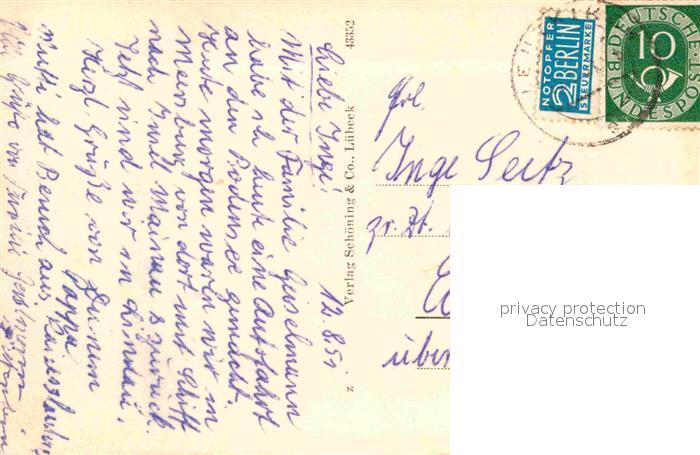 12.8.51
Liebe Inge!
Mit der Familie Geiselmann
habe ich heute eine Autofahrt
an den Bodensee gemacht.
Heute morgen waren wir in
Meersburg von dort mit Schiff
nach Insel Mainau & zurück
Jetzt sind wir in Lindau.
Herzl. Grüße von Deinem
Pappa.
Mutti hat Besuch aus
Grüße von
43352
Verlag Schöning & Co., Lübeck
z
NOTOPFER
2 BERLIN
STEUERMARKE
DEUTSCHE
BUNDESPOST
10
Frl.
Inge Seitz
zr. Zt.
über
privacy protection
Datenschutz